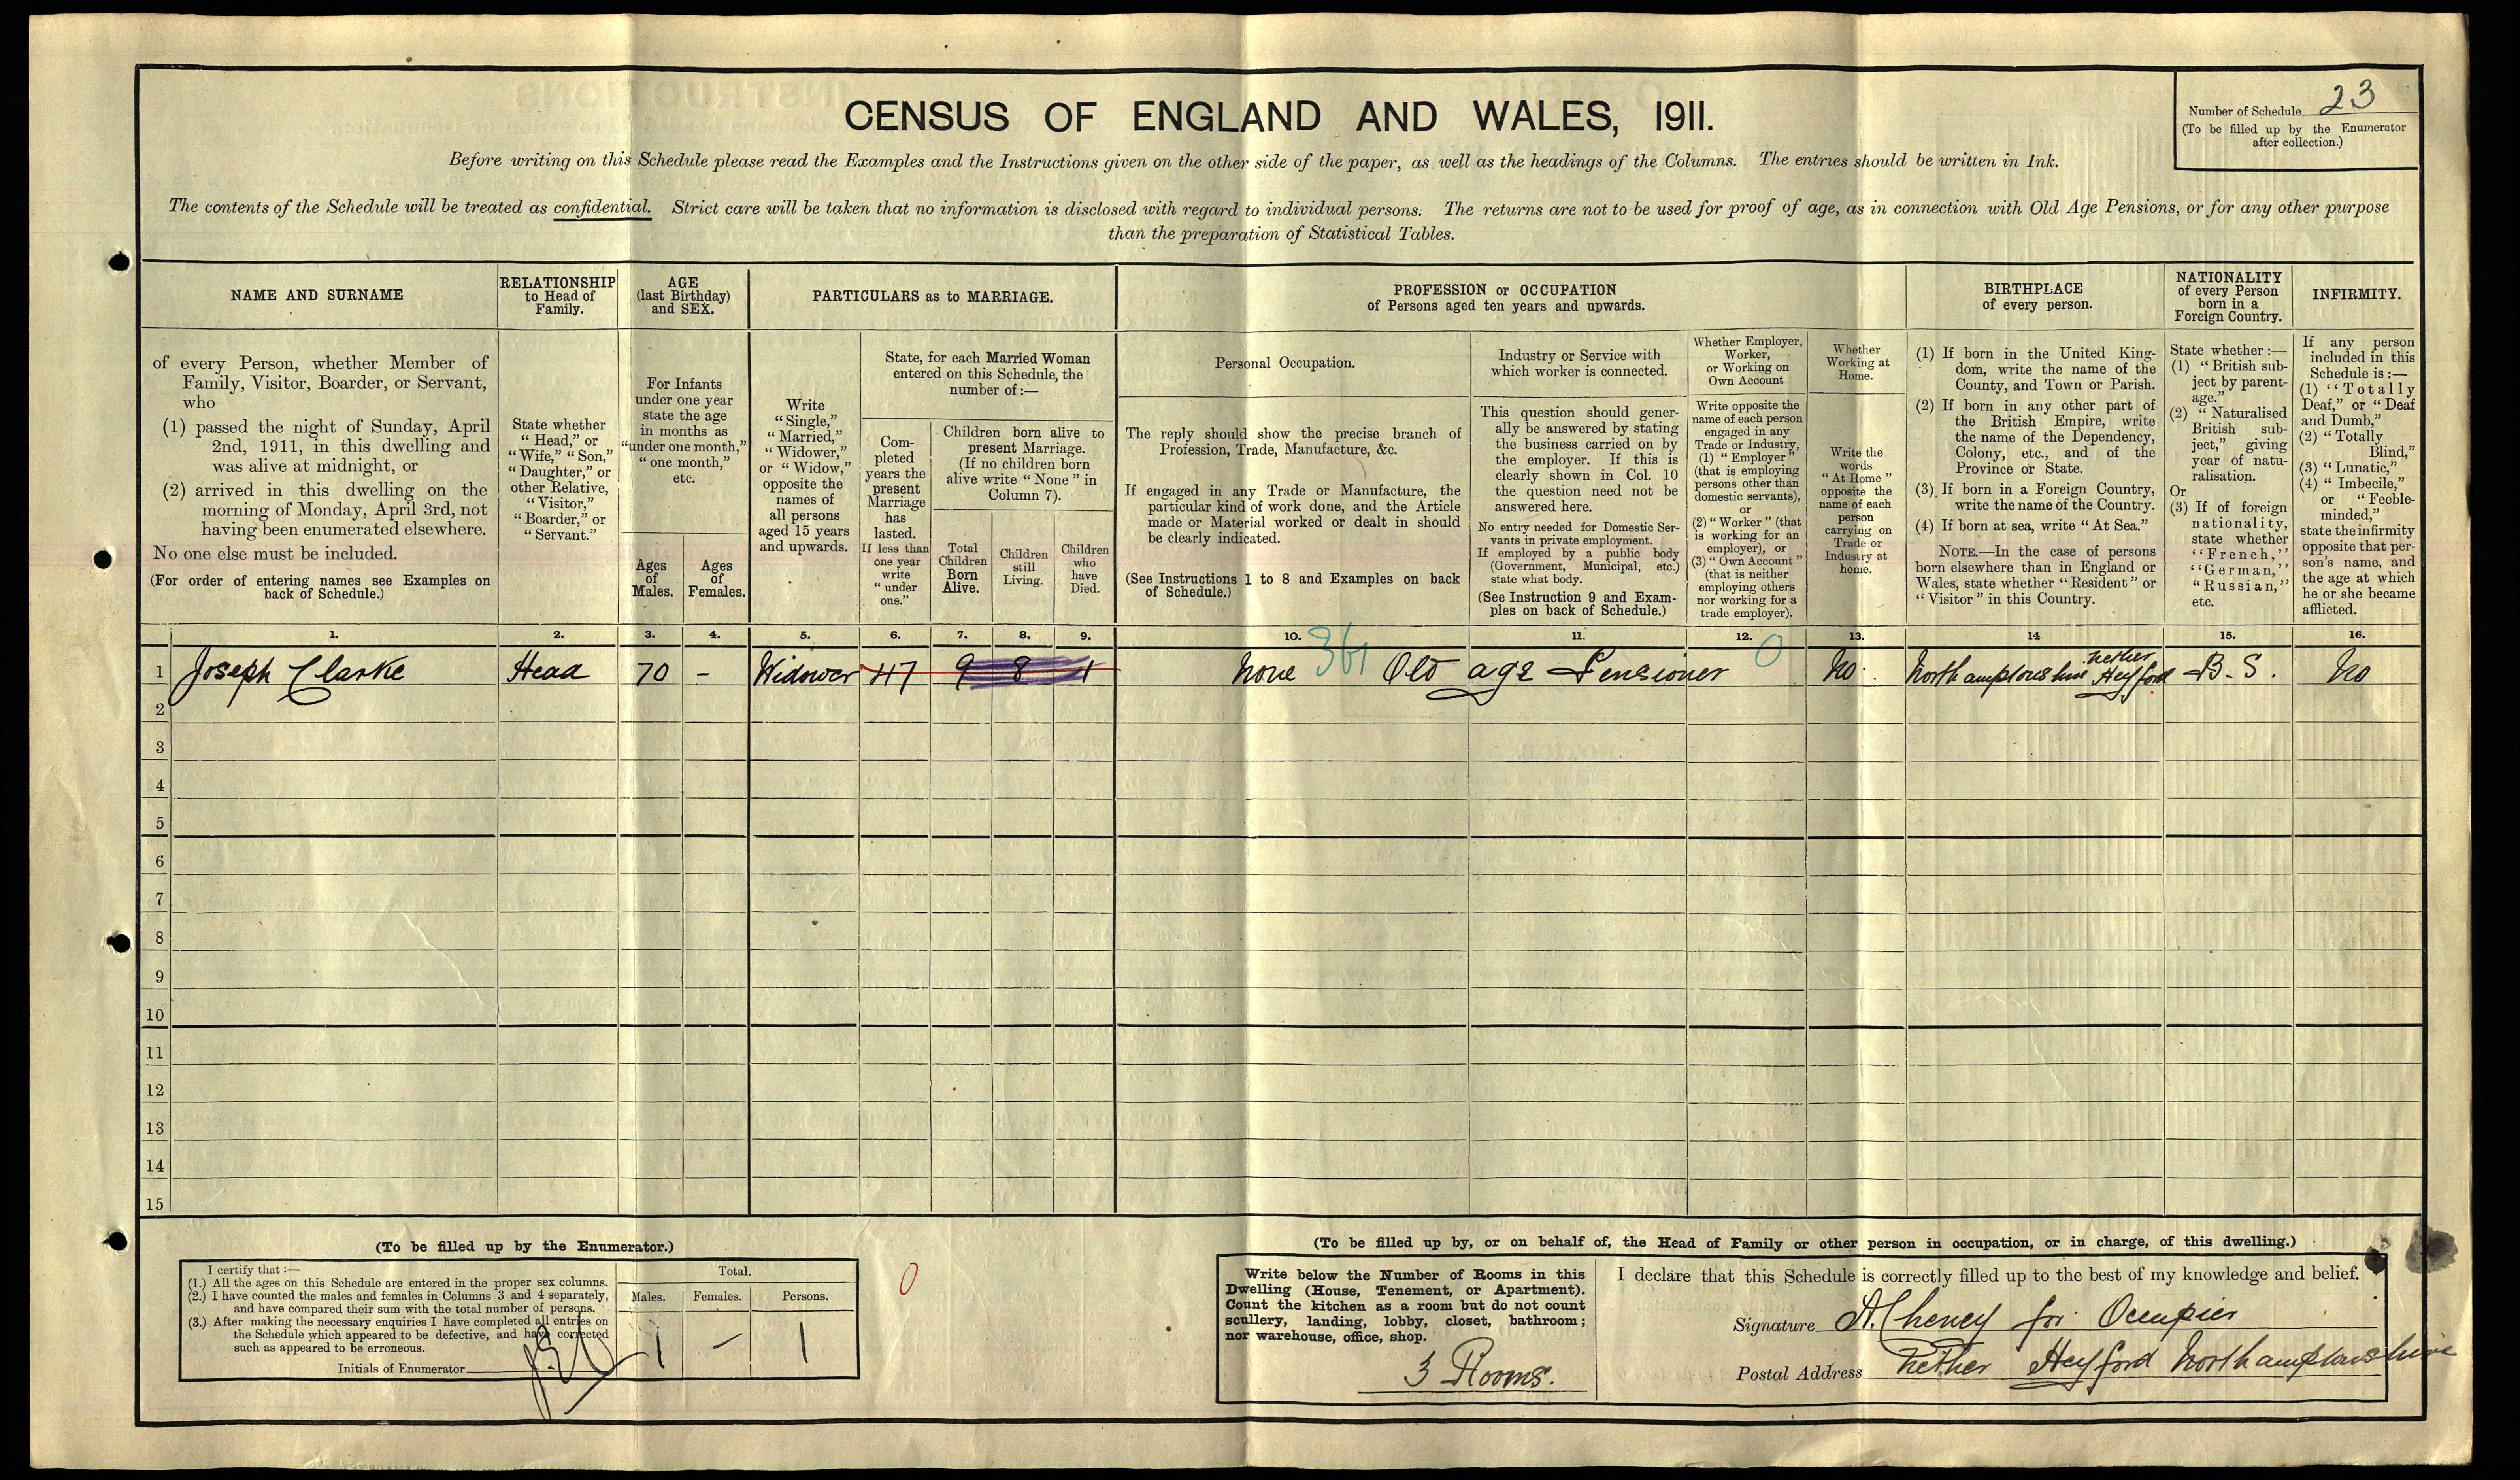 CENSUS OF ENGLAND AND WALES, 1911.
Number of Schedule 23
(To be filled up by the Enumerator
after collection.)
Before writing on this Schedule please read the Examples and the Instructions given on the other side of the paper, as well as the headings of the Columns. The entries should be written in Ink.
The contents of the Schedule will be treated as confidential. Strict care will be taken that no information is disclosed with regard to individual persons. The returns are not to be used for proof of age, as in connection with Old Age Pensions, or for any other purpose
than the preparation of Statistical Tables.
NAME AND SURNAME
of every Person, whether Member of
Family, Visitor, Boarder, or Servant,
who
(1) passed the night of Sunday, April
2nd, 1911, in this dwelling and
was alive at midnight, or
(2) arrived in this dwelling on the
morning of Monday, April 3rd, not
having been enumerated elsewhere.
No one else must be included.
(For order of entering names see Examples on
back of Schedule.)
RELATIONSHIP
to Head of
Family.
State whether
"Head," or
"Wife," "Son,"
"Daughter," or
other Relative,
"Visitor,"
"Boarder," or
"Servant."
AGE
(last Birthday)
and SEX.
For Infants
under one year
state the age
in months as
"under one month,"
"one month,"
etc.
Ages
of
Males.
Ages
of
Females.
PARTICULARS as to MARRIAGE.
Write
"Single,"
"Married,"
"Widower,"
or "Widow,"
opposite the
names of
all persons
aged 15 years
and upwards.
State, for each Married Woman
entered on this Schedule, the
number of:—
Com-
pleted
years the
present
Marriage
has
lasted.
If less than
one year
write
"under
one."
Children born alive to
present Marriage.
(If no children born
alive write "None" in
Column 7).
Total
Children
Born
Alive.
Children
still
Living.
Children
who
have
Died.
PROFESSION or OCCUPATION
of Persons aged ten years and upwards.
Personal Occupation.
The reply should show the precise branch of
Profession, Trade, Manufacture, &c.
If engaged in any Trade or Manufacture, the
particular kind of work done, and the Article
made or Material worked or dealt in should
be clearly indicated.
(See Instructions 1 to 8 and Examples on back
of Schedule.)
Industry or Service with
which worker is connected.
This question should gener-
ally be answered by stating
the business carried on by
the employer. If this is
clearly shown in Col. 10
the question need not be
answered here.
No entry needed for Domestic Ser-
vants in private employment.
If employed by a public body
(Government, Municipal, etc.)
state what body.
(See Instruction 9 and Exam-
ples on back of Schedule.)
Whether Employer,
Worker,
or Working on
Own Account.
Write opposite the
name of each person
engaged in any
Trade or Industry,
(1) "Employer"
(that is employing
persons other than
domestic servants),
or
(2) "Worker" (that
is working for an
employer), or
(3) "Own Account"
(that is neither
employing others
nor working for a
trade employer).
Whether
Working at
Home.
Write the
words
"At Home"
opposite the
name of each
person
carrying on
Trade or
Industry at
home.
BIRTHPLACE
of every person.
(1) If born in the United King-
dom, write the name of the
County, and Town or Parish.
(2) If born in any other part of
the British Empire, write
the name of the Dependency,
Colony, etc., and of the
Province or State.
(3) If born in a Foreign Country,
write the name of the Country.
(4) If born at sea, write "At Sea."
NOTE.—In the case of persons
born elsewhere than in England or
Wales, state whether "Resident" or
"Visitor" in this Country.
NATIONALITY
of every Person
born in a
Foreign Country.
State whether:—
(1) "British sub-
ject by parent-
age."
(2) "Naturalised
British sub-
ject," giving
year of natu-
ralisation.
Or
(3) If of foreign
nationality,
state whether
"French,"
"German,"
"Russian,"
etc.
INFIRMITY.
If any person
included in this
Schedule is:—
(1) "Totally
Deaf," or "Deaf
and Dumb,"
(2) "Totally
Blind,"
(3) "Lunatic,"
(4) "Imbecile,"
or "Feeble-
minded,"
state the infirmity
opposite that per-
son's name, and
the age at which
he or she became
afflicted.
1. 2. 3. 4. 5. 6. 7. 8. 9. 10. 11. 12. 13. 14 15. 16.
1 Joseph Clarke Head 70 - Widower 47 9 8 1 None 361 Old age Pensioner 0 No Northamptonshire Nether Heyford B.S. No
2
3
4
5
6
7
8
9
10
11
12
13
14
15
(To be filled up by the Enumerator.)
I certify that:—
(1.) All the ages on this Schedule are entered in the proper sex columns.
(2.) I have counted the males and females in Columns 3 and 4 separately,
and have compared their sum with the total number of persons.
(3.) After making the necessary enquiries I have completed all entries on
the Schedule which appeared to be defective, and have corrected
such as appeared to be erroneous.
Initials of Enumerator
Total.
Males. Females. Persons.
1 - 1
0
(To be filled up by, or on behalf of, the Head of Family or other person in occupation, or in charge, of this dwelling.)
Write below the Number of Rooms in this
Dwelling (House, Tenement, or Apartment).
Count the kitchen as a room but do not count
scullery, landing, lobby, closet, bathroom;
nor warehouse, office, shop.
3 Rooms.
I declare that this Schedule is correctly filled up to the best of my knowledge and belief.
Signature A. Cheney for Occupier
Postal Address Nether Heyford Northamptonshire